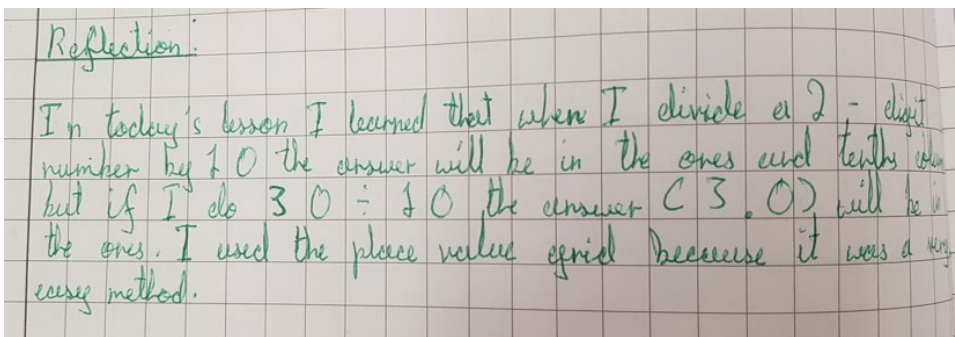 Reflection:
In today's lesson I learned that when I divide a 2 - digit
number by 10 the answer will be in the ones and tenths colum
but if I do 30 ÷ 10 the answer (3.0) will be in
the ones. I used the place value grid because it was a very
easy method.